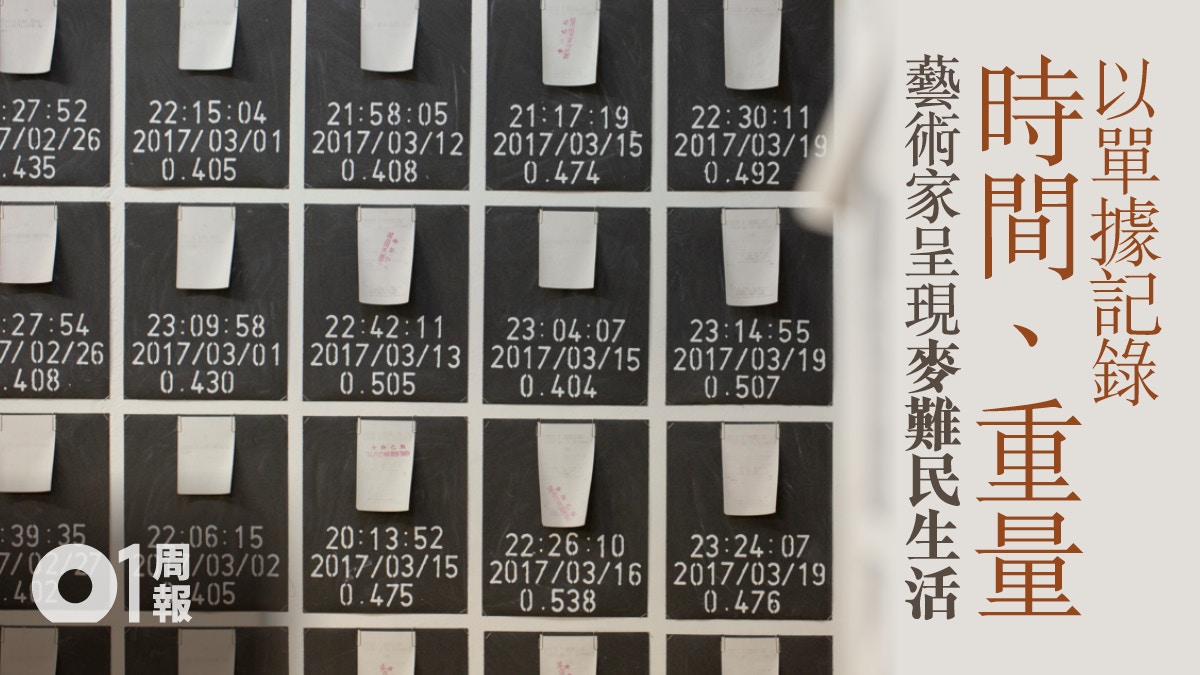 以單據記錄
時間、重量
藝術家呈現麥難民生活
:27:52
7/02/26
.435
22:15:04
2017/03/01
0.405
21:58:05
2017/03/12
0.408
21:17:19
2017/03/15
0.474
22:30:11
2017/03/19
0.492
:27:54
7/02/26
.408
23:09:58
2017/03/01
0.430
22:42:11
2017/03/13
0.505
23:04:07
2017/03/15
0.404
23:14:55
2017/03/19
0.507
:39:35
7/02/27
.402
22:06:15
2017/03/02
0.405
20:13:52
2017/03/15
0.475
22:26:10
2017/03/16
0.538
23:24:07
2017/03/19
0.476
01周報